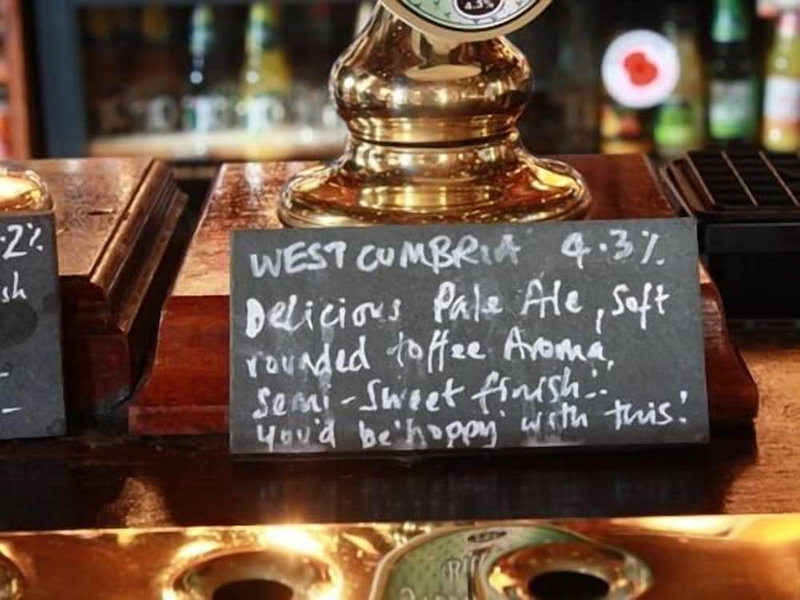 4.3%
.2%
sh
WEST CUMBRIA 4.3%
Delicious Pale Ale, Soft
rounded toffee Aroma,
semi-sweet finish!.
you'd be 'hoppy' with this!